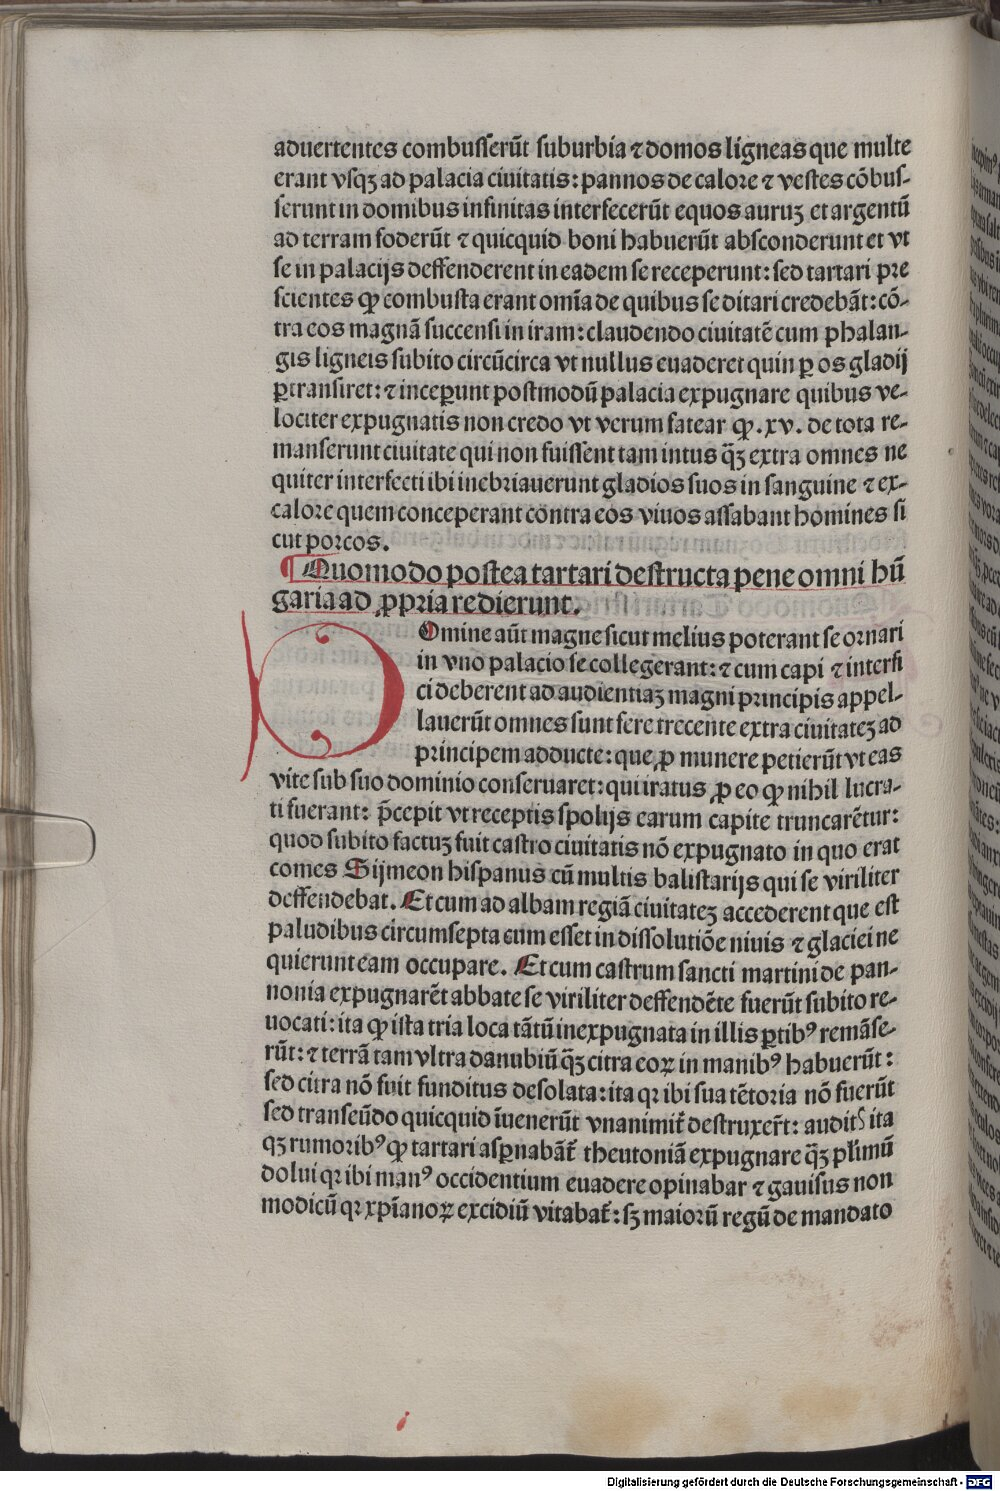 aduertentes combusserūt suburbia ⁊ domos ligneas que multe
erant vsqꝫ ad palacia ciuitatis: pannos de calore ⁊ vestes cōbus-
serunt in domibus infinitas interfecerūt equos auruꝫ et argentū
ad terram foderūt ⁊ quicquid boni habuerūt absconderunt et vt
se in palacijs deffenderent in eadem se receperunt: sed tartari pre
scientes ꝙ combusta erant om̄ia de quibus se ditari credebāt: cō-
tra eos magnā succensi in iram: claudendo ciuitatē cum phalan-
gis ligneis subito circūcirca vt nullus euaderet quin ꝑ os gladij
ꝑtransiret: ⁊ inceꝑunt postmodū palacia expugnare quibus ve-
lociter expugnatis non credo vt verum fatear ꝙ .xv. de tota re-
manserunt ciuitate qui non fuissent tam intus q̄ꝫ extra omnes ne
quiter interfecti ibi inebriauerunt gladios suos in sanguine ⁊ ex-
calore quem conceperant contra eos viuos assabant homines si
cut porcos.
¶ Quomodo postea tartari destructa pene omni hū
garia ad ꝓpria redierunt.
DOmine aūt magne sicut melius poterant se ornari
in vno palacio se collegerant: ⁊ cum capi ⁊ interfi
ci deberent ad audientiaꝫ magni principis appel-
lauerūt omnes sunt fere trecente extra ciuitateꝫ ad
principem adducte: que ꝓ munere petierūt vt eas
vite sub suo dominio conseruaret: qui iratus ꝓ eo ꝙ nihil lucra-
ti fuerant: p̄cepit vt receptis spolijs earum capite truncarētur:
quod subito factuꝫ fuit castro ciuitatis nō expugnato in quo erat
comes Sijmeon hispanus cū multis balistarijs qui se viriliter
deffendebat. Et cum ad albam regiā ciuitateꝫ accederent que est
paludibus circumsepta cum esset in dissolutiōe niuis ⁊ glaciei ne
quierunt eam occupare. Et cum castrum sancti martini de pan-
nonia expugnarēt abbate se viriliter deffendēte fuerūt subito re-
uocati: ita ꝙ ista tria loca tātū inexpugnata in illis ꝑtibꝰ remāse-
rūt: ⁊ terrā tam vltra danubiū q̄ꝫ citra eoꝝ in manibꝰ habuerūt:
sed citra nō fuit funditus desolata: ita qꝛ ibi sua tētoria nō fuerūt
sed transeūdo quicquid īuenerūt vnanimit̄ destruxer̄t: auditꝭ ita
qꝫ rumoribꝰ ꝙ tartari asꝑnabāt̄ theutoniā expugnare q̄ꝫ pl̄imū
dolui qꝛ ibi manꝰ occidentium euadere opinabar ⁊ gauisus non
modicū qꝛ xp̄ianoꝝ excidiū vitabat̄: sꝫ maiorū regū de mandato
Digitalisierung gefördert durch die Deutsche Forschungsgemeinschaft - DFG